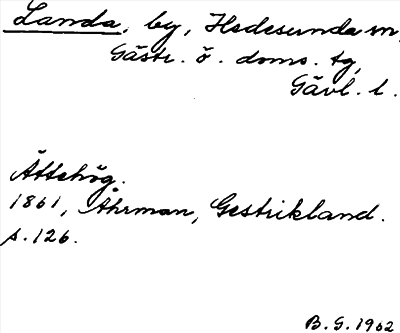 Landa, by, Hedesunda sn,
Gästr. ö. doms. tg,
Gävl. l.
Ättehög.
1861, Åhrman, Gestrikland.
s. 126.
B. G. 1962